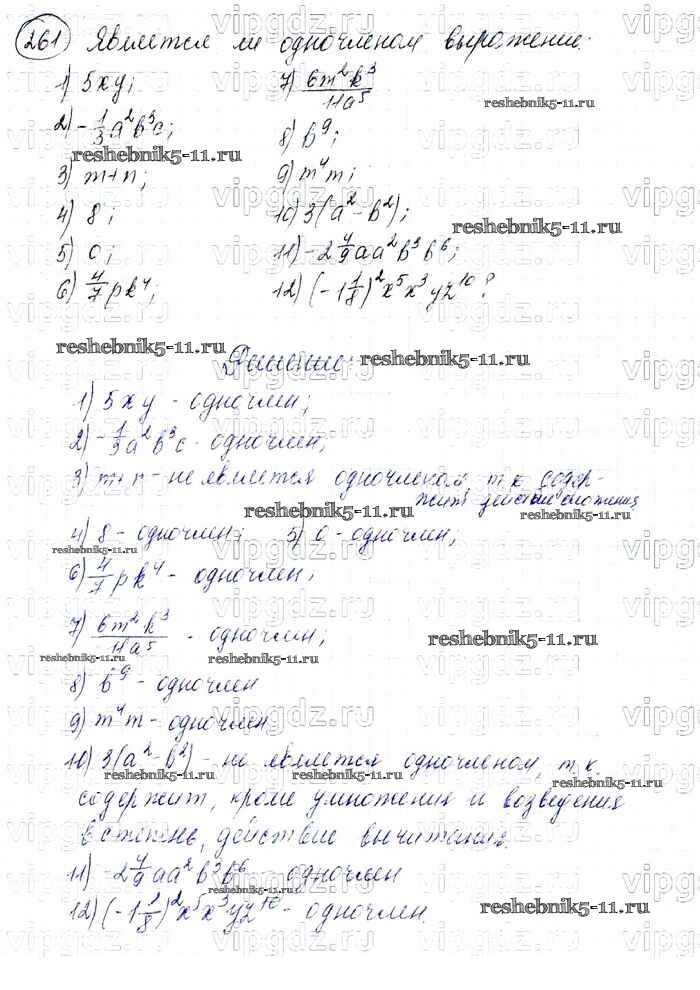 261 Является ли одночленом выражение:
1) 5xy; 7) 6m²k³/11a⁵
2) -1/3a²b³c; 8) b⁹;
3) m+n; 9) m⁴m;
4) 8; 10) 3(a² - b²);
5) 0; 11) -2 4/9aa²b³b⁶;
6) 4/7pk⁴; 12) (-1 1/8)²x⁵x³yz¹⁰?
Решение:
1) 5xy - одночлен;
2) -1/3a²b³c - одночлен;
3) m+n - не является одночленом, т.к. содер-
жит действие сложения
4) 8 - одночлен; 5) 0 - одночлен;
6) 4/7pk⁴ - одночлен;
7) 6m²k³/11a⁵ - одночлен;
8) b⁹ - одночлен
9) m⁴m - одночлен
10) 3(a² - b²) - не является одночленом, т.к.
содержит, кроме умножения и возведения
в степень, действие вычитания.
11) -2 4/9aa²b³b⁶ одночлен
12) (-1 1/8)²x⁵x³yz¹⁰ - одночлен.
vipgdz.ru
reshebnik5-11.ru